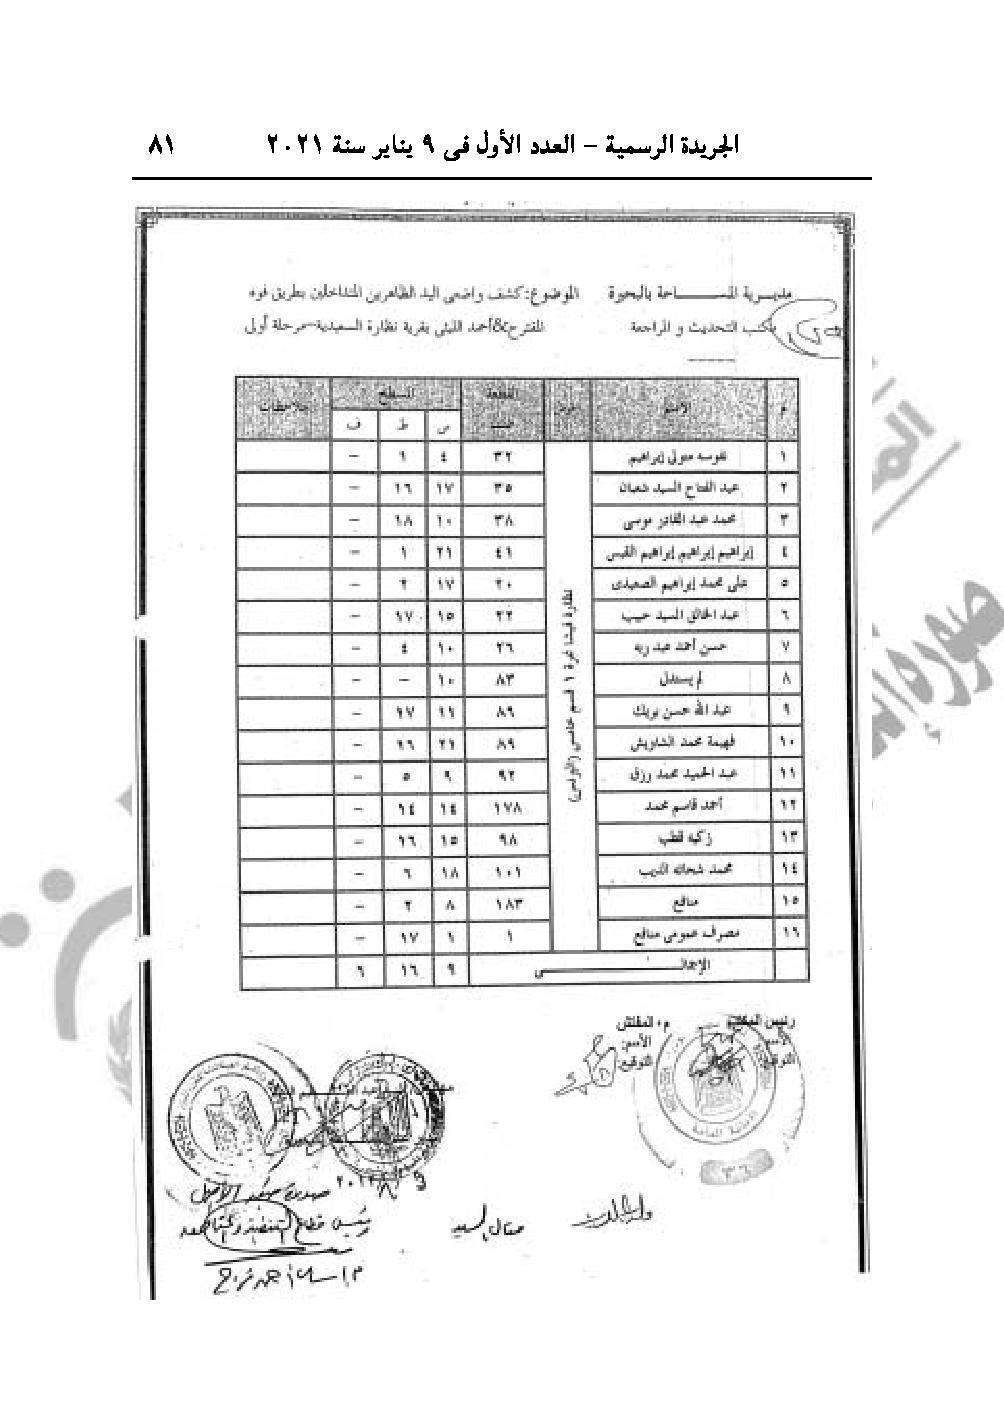 الجريدة الرسمية – العدد الأول فى ٩ يناير سنة ٢٠٢١ ٨١
مديرية المساحة بالبحيرة الموضوع: كشف واضعى اليد الظاهرين المتداخلين بطريق فوه
مكتب التحديث و المراجعة المقترح & أحمد الليثى بقرية نظارة السعيدية – مرحلة أولى
م الاسم حوض القطعة المسطح ملاحظات
س ط ف
١ نفوسه متولى إبراهيم ٣٢ ٤ ١ –
٢ عبد الفتاح السيد شعبان ٣٥ ١٧ ١٦ –
٣ محمد عبد القادر موسى ٣٨ ١٠ ١٨ –
٤ إبراهيم إبراهيم إبراهيم القيس ٤١ ٢١ ١ –
٥ على محمد إبراهيم الصعيدى ٢٠ ١٧ ٢ –
٦ عبد الخالق السيد حبيب ٢٢ ١٥ ١٧ –
٧ حسن أحمد عبد ربه ٢٦ ١٠ ٤ –
٨ لم يستدل ٨٣ ١٠ – –
٩ عبد الله حسن بريك ٨٩ ١١ ١٧ –
١٠ فهيمة محمد الشاويش ٨٩ ٢١ ١٦ –
١١ عبد الحميد محمد رزق ٩٢ ٩ ٥ –
١٢ أحمد قاسم محمد ١٧٨ ١٤ ١٤ –
١٣ زكيه قطب ٩٨ ١٥ ١٦ –
١٤ محمد شحاته الديب ١٠١ ١٨ ٦ –
١٥ منافع ١٨٣ ٨ ٢ –
١٦ مصرف عمومى منافع ١ ١ ١٧ –
الإجمالى ٩ ١٦ ٦
نظارة فيشا نمرة ١ قسم خامس
رئيس المكتب م المفتش
الاسم الأسم:
التوقيع التوقيع:
٣٦
صورة